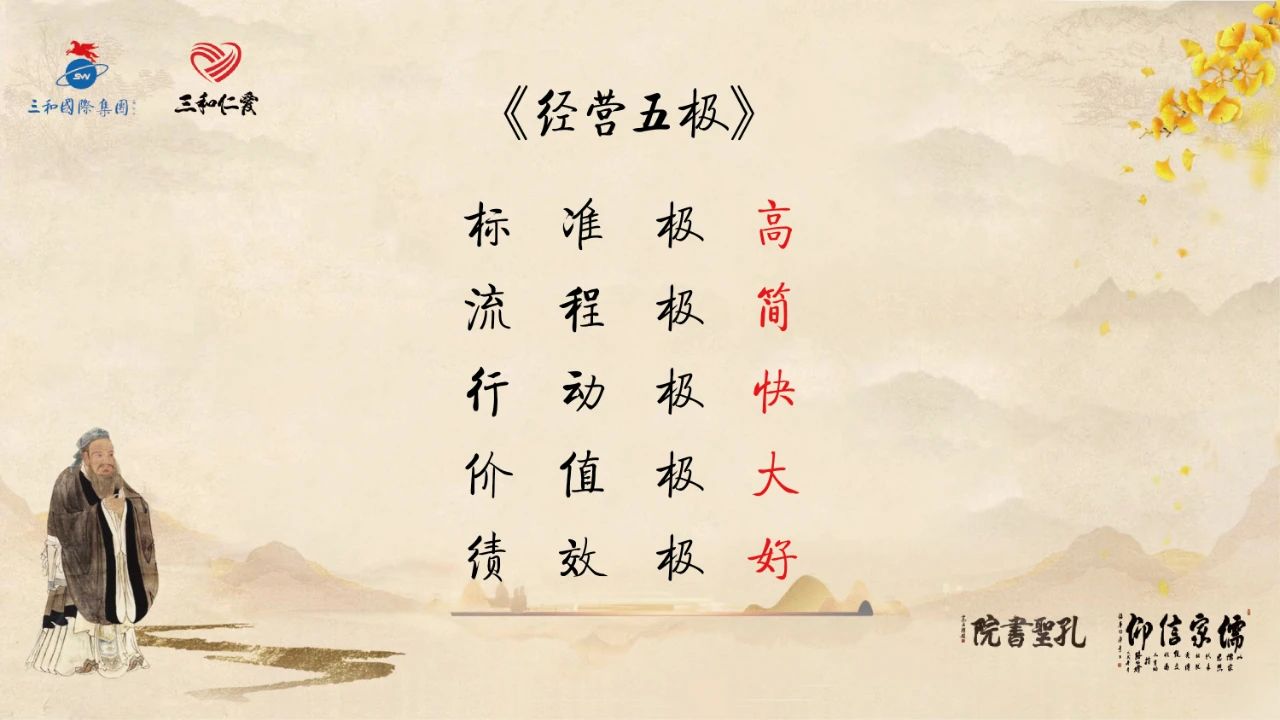 三和國際集團
三和仁爱
《经营五极》
标准极高
流程极简
行动极快
价值极大
绩效极好
孔聖書院
儒家信仰